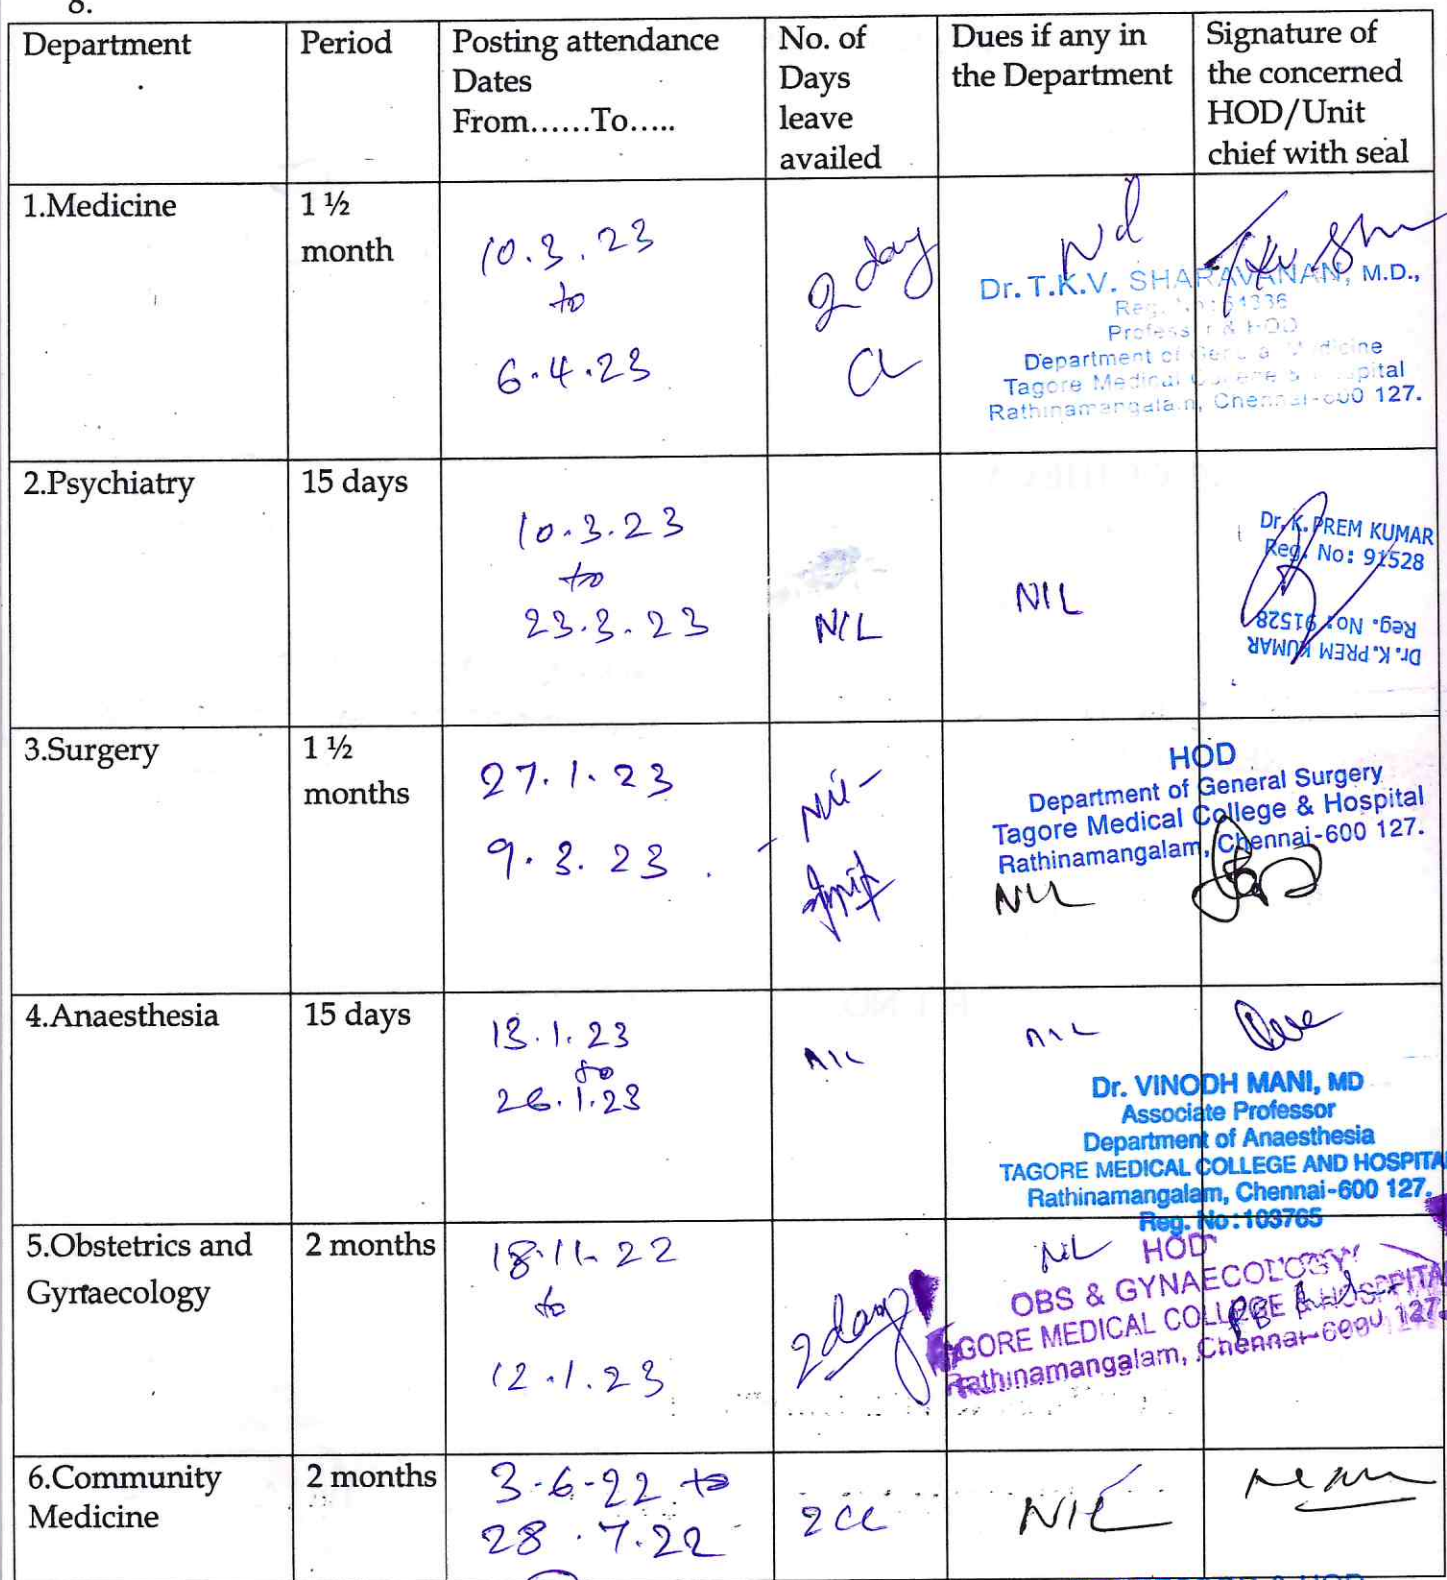 8.
Department
Period
Posting attendance
Dates
From......To.....
No. of
Days
leave
availed
Dues if any in
the Department
Signature of
the concerned
HOD/Unit
chief with seal
1.Medicine
1 ½
month
10.3.23
to
6.4.23
2 day
Dr. T.K.V. SHARAVANAN, M.D.,
Reg. No: 64336
Professor & HOD
Department of General Medicine
Tagore Medical College & Hospital
Rathinamangalam, Chennai-600 127.
2.Psychiatry
15 days
10.3.23
to
23.3.23
NIL
NIL
Dr. K. PREM KUMAR
Reg. No: 91528
Dr. K. PREM KUMAR
Reg. No: 91528
3.Surgery
1 ½
months
27.1.23
9.3.23.
Nil-
HOD
Department of General Surgery
Tagore Medical College & Hospital
Rathinamangalam, Chennai-600 127.
NIL
4.Anaesthesia
15 days
13.1.23
to
26.1.23
NIL
NIL
Dr. VINODH MANI, MD
Associate Professor
Department of Anaesthesia
TAGORE MEDICAL COLLEGE AND HOSPITA
Rathinamangalam, Chennai-600 127.
Reg. No:103765
5.Obstetrics and
Gynaecology
2 months
18.11.22
to
12.1.23
2 day
NIL
HOD
OBS & GYNAECOLOGY
GORE MEDICAL COLLEGE & HOSPITA
Rathinamangalam, Chennai-600 127.
6.Community
Medicine
2 months
3-6-22 to
28.7.22
2 CL
NIL